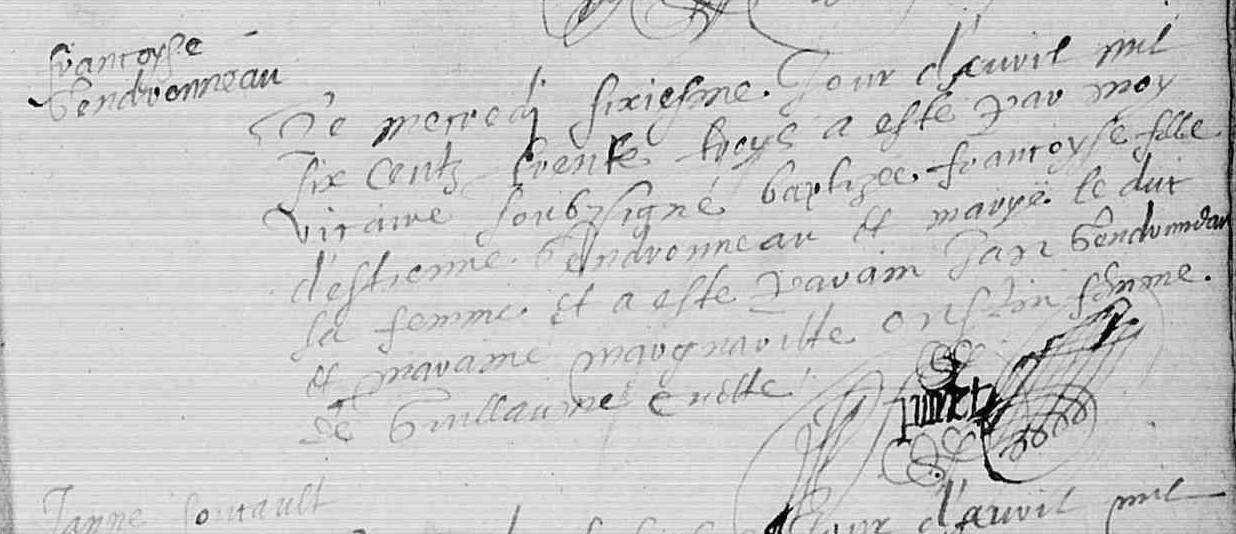 françoyse
Gendronneau
Le mercredj sixiesme Jour d'auvril mil
six centz trente troys a esté par moy
vicaire soubzsigné baptizee françoyse fille
d'estienne Gendronneau et marye le duit
sa femme et a esté parain Jan Gendronneau
et maraine margueritte femme
de Guillaume
Janne
Jour d'auvril mil